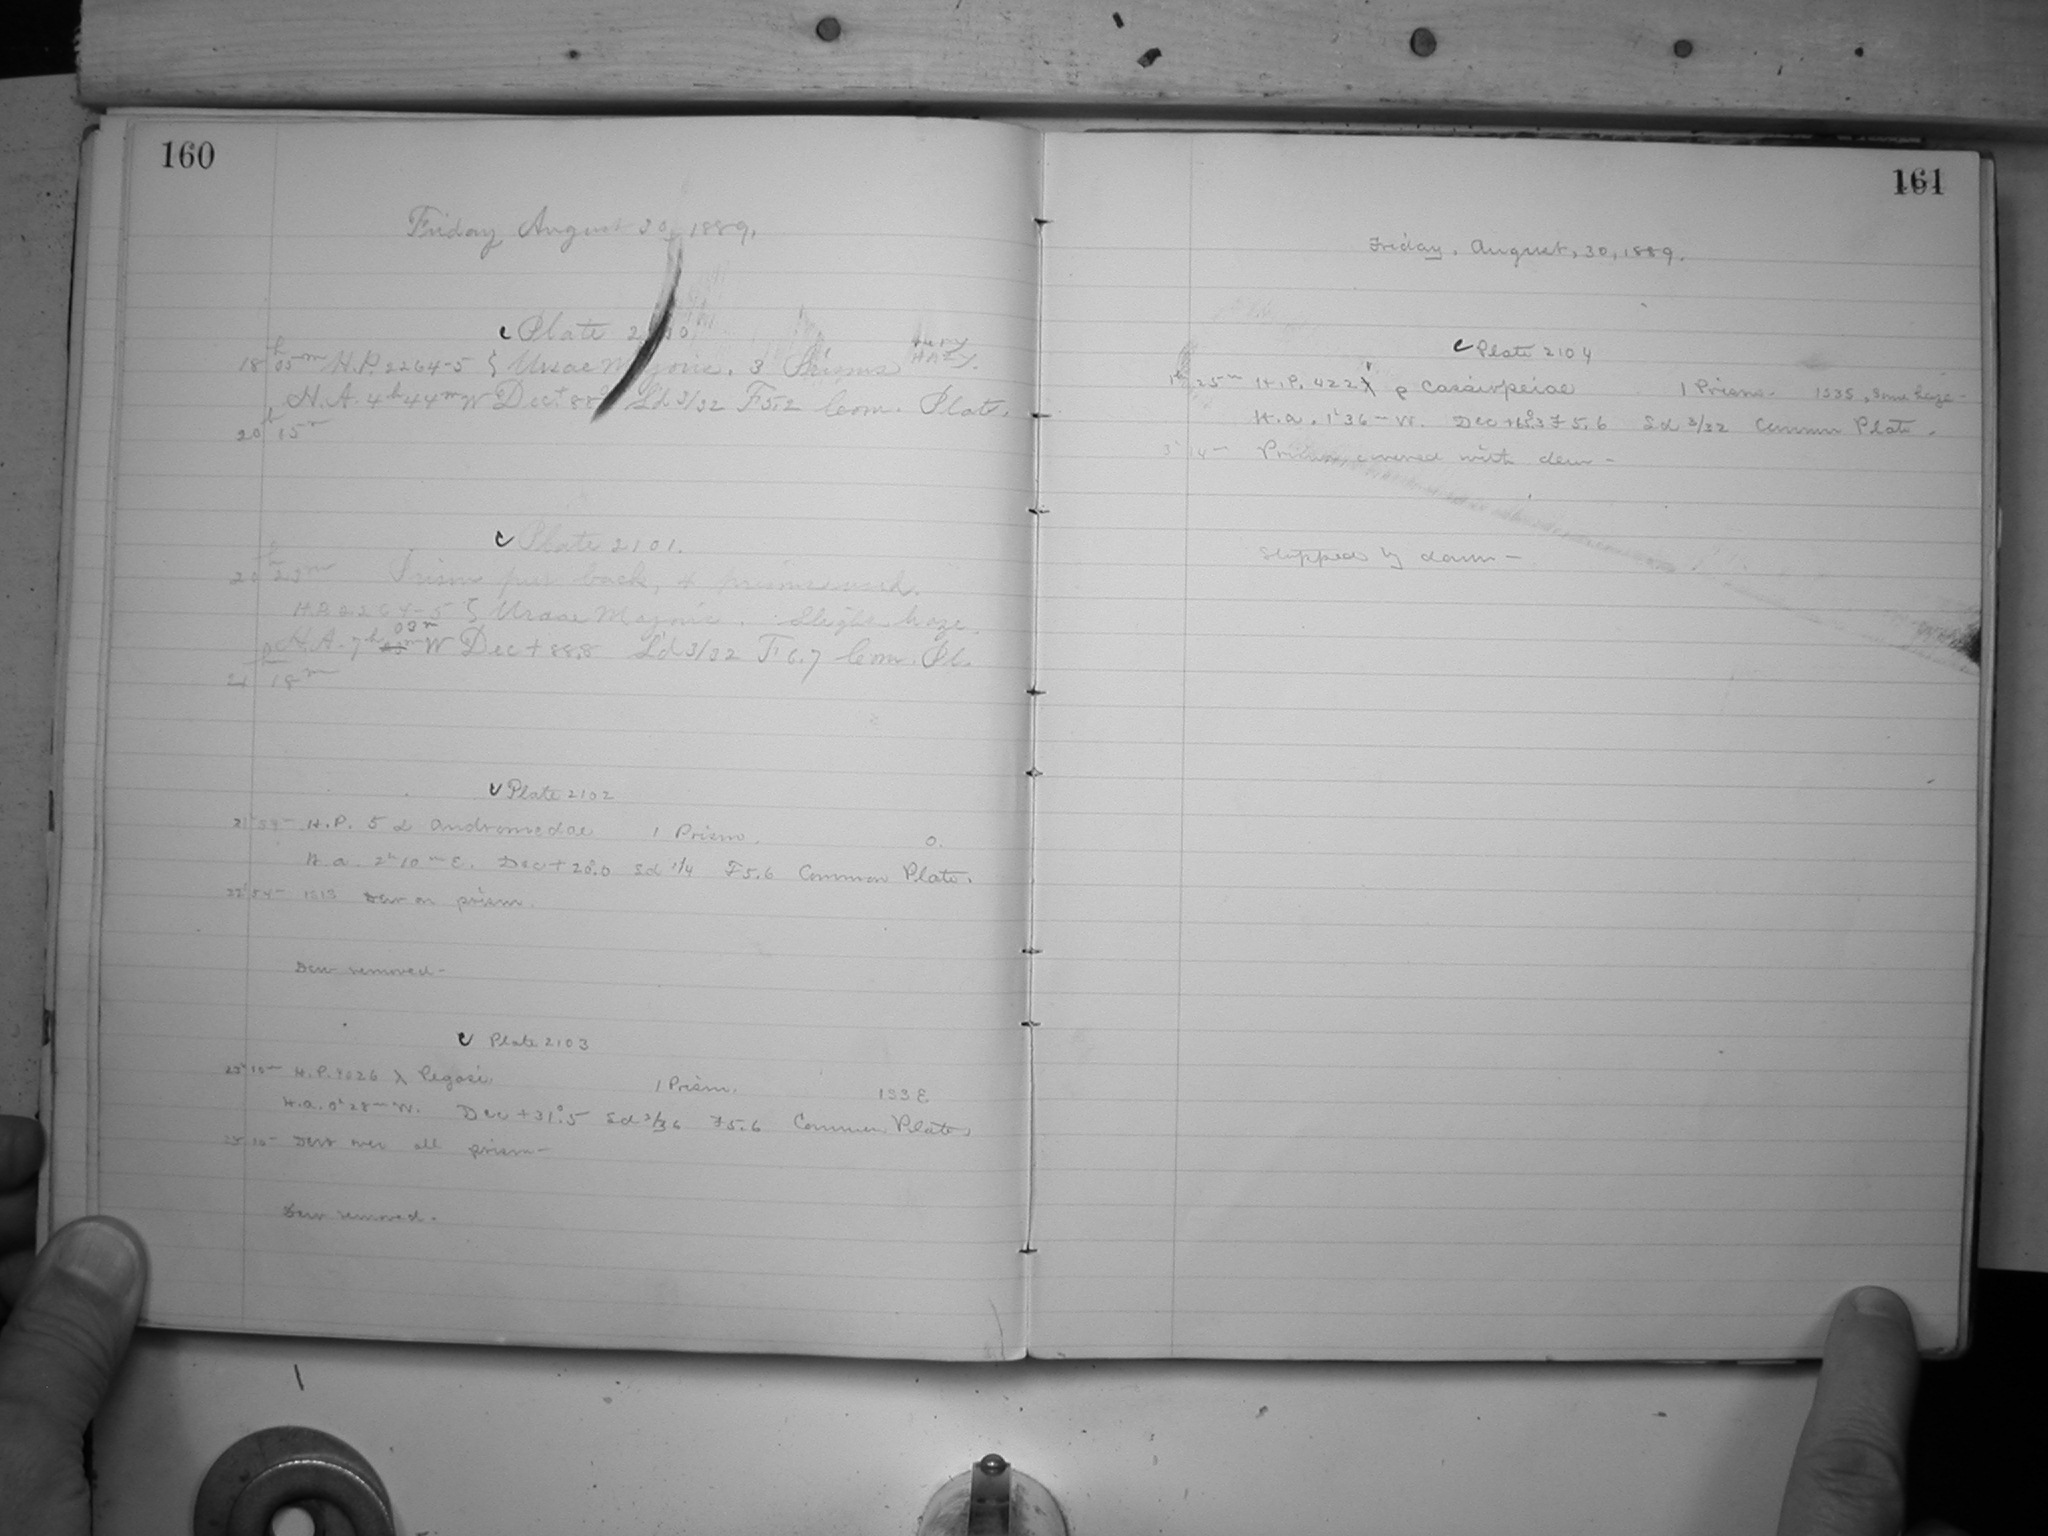 160
Friday August 30, 1889.
c Plate 2100
very
18 h 05 m H.P. 2264-5 ζ Ursae Majoris. 3 Prisms HAZY.
H.A. 4h 44m W Dec. + 88 Sd 3/32 F 5.2 Com. Plate.
20 h 15 m
c Plate 2101.
20 h 23 m Prism put back, 4 prisms used.
H.P. 2264-5 ζ Ursae Majoris. Slight haze.
03m
H.A. 7h W Dec + 88.8 Sd 3/32 F 6.7 Com. Pl.
21 18 m
c Plate 2102
21 54 m H.P. 5 α Andromedae 1 Prism. 0.
H.a. 2h 10m E. Dec + 28°.0 Sd 1/4 F 5.6 Common Plate.
22 54 m 1S13 Dew on prism.
Dew removed-
c Plate 2103
23h 10m H.P. 4026 λ Pegasi 1 Prism. 1S3E
H.a. 0h 28m W. Dec + 31°.5 Sd 3/36 F 5.6 Common Plate.
10 m Dew over all prism-
Dew removed-
161
Friday, August, 30, 1889.
c Plate 2104
1h 25m H.P. 422 ρ Cassiopeiae 1 Prism. 1S3S, some haze-
H.a. 1h 36m W. Dec F 5.6 Sd 3/32 Common Plate.
3h 14m Prism covered with dew-
Stopped by dawn-